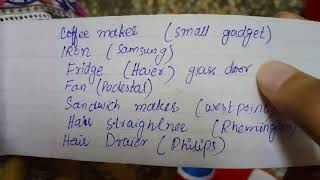 Coffee maker (small gadget)
Iron (Samsung)
Fridge (Haier) glass door
Fan (Padestal)
Sandwich maker (westpoint
Hair Straightner (Rhemington
Hair Draier (Philips)